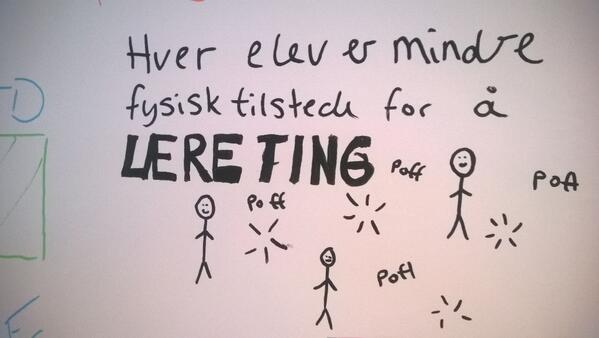 Hver elev er mindre
fysisk tilstede for å
LÆRE TING
Poff
Poff
Poff
Poff